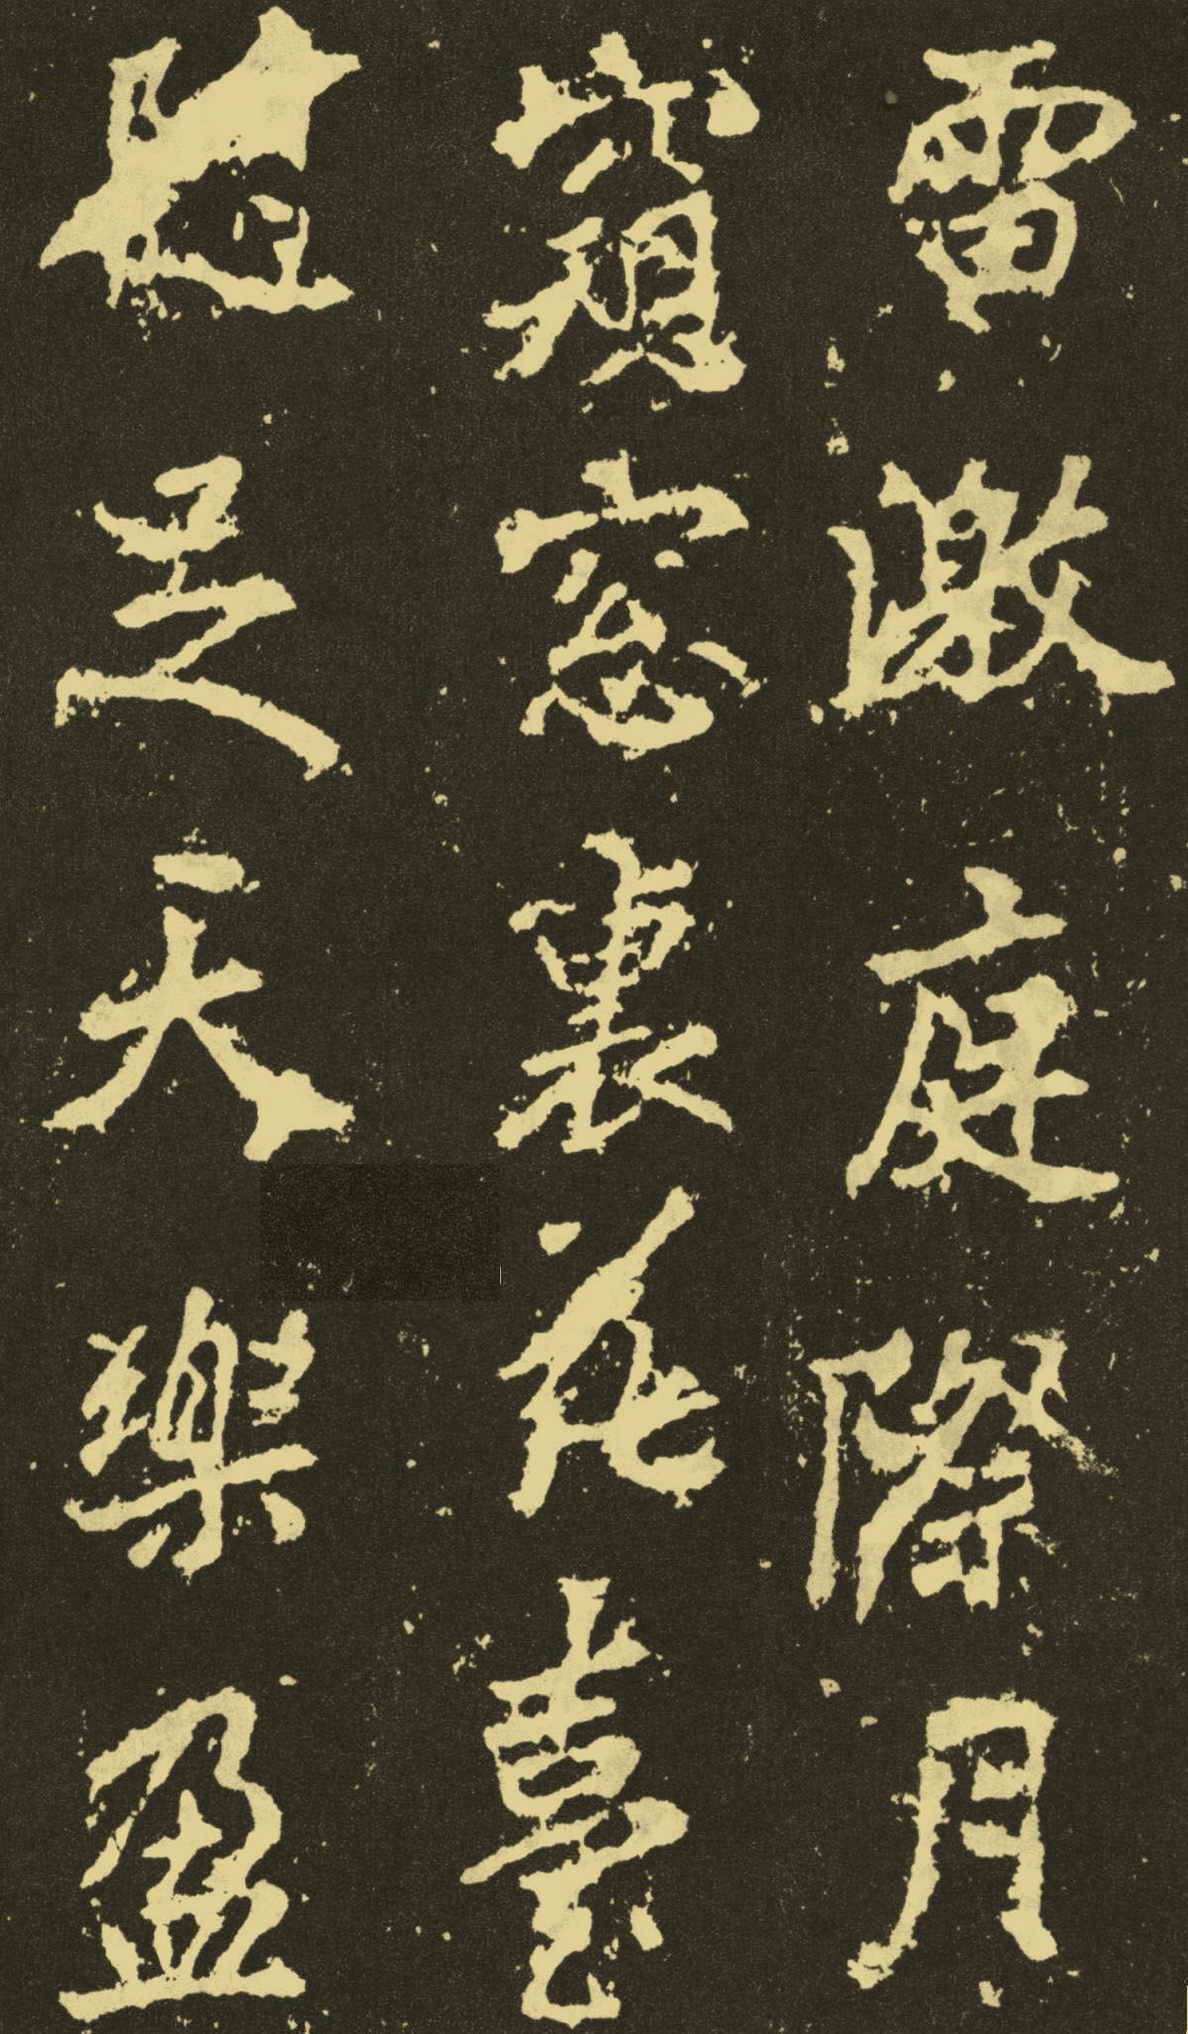 雷邀庭際月
窺窓裏花臺
隨足天樂盈